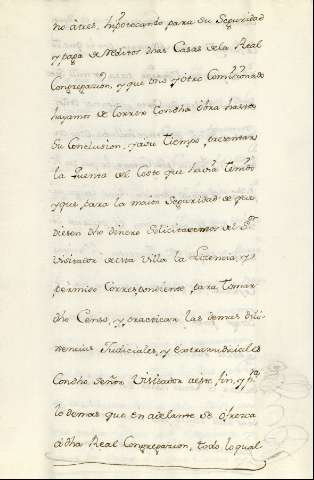 no áties, hipotecando para su Seguridad
y paga de réditos dhas Casas de la Real
Congregazion, y que dhos y otro Comisionado
hayamos de Correr Con dha obra hasta
Su Conclusion, y a su Tiempo presentar
la Quenta del Coste que havia tenido
y que para la maior Seguridad de que
diesen dho dinero Solicitaremos del Sr.
Visitador de esta Villa la Licencia, y
permiso Correspondiente para tomar
dho Censo, y practicar las demas dili-
nencias Judiciales, y extrajudiciales
Con dho Señor Visitador a este fin, y pa.
lo demas que en adelante se ofrezca
a dha Real Congregazion, todo lo qual